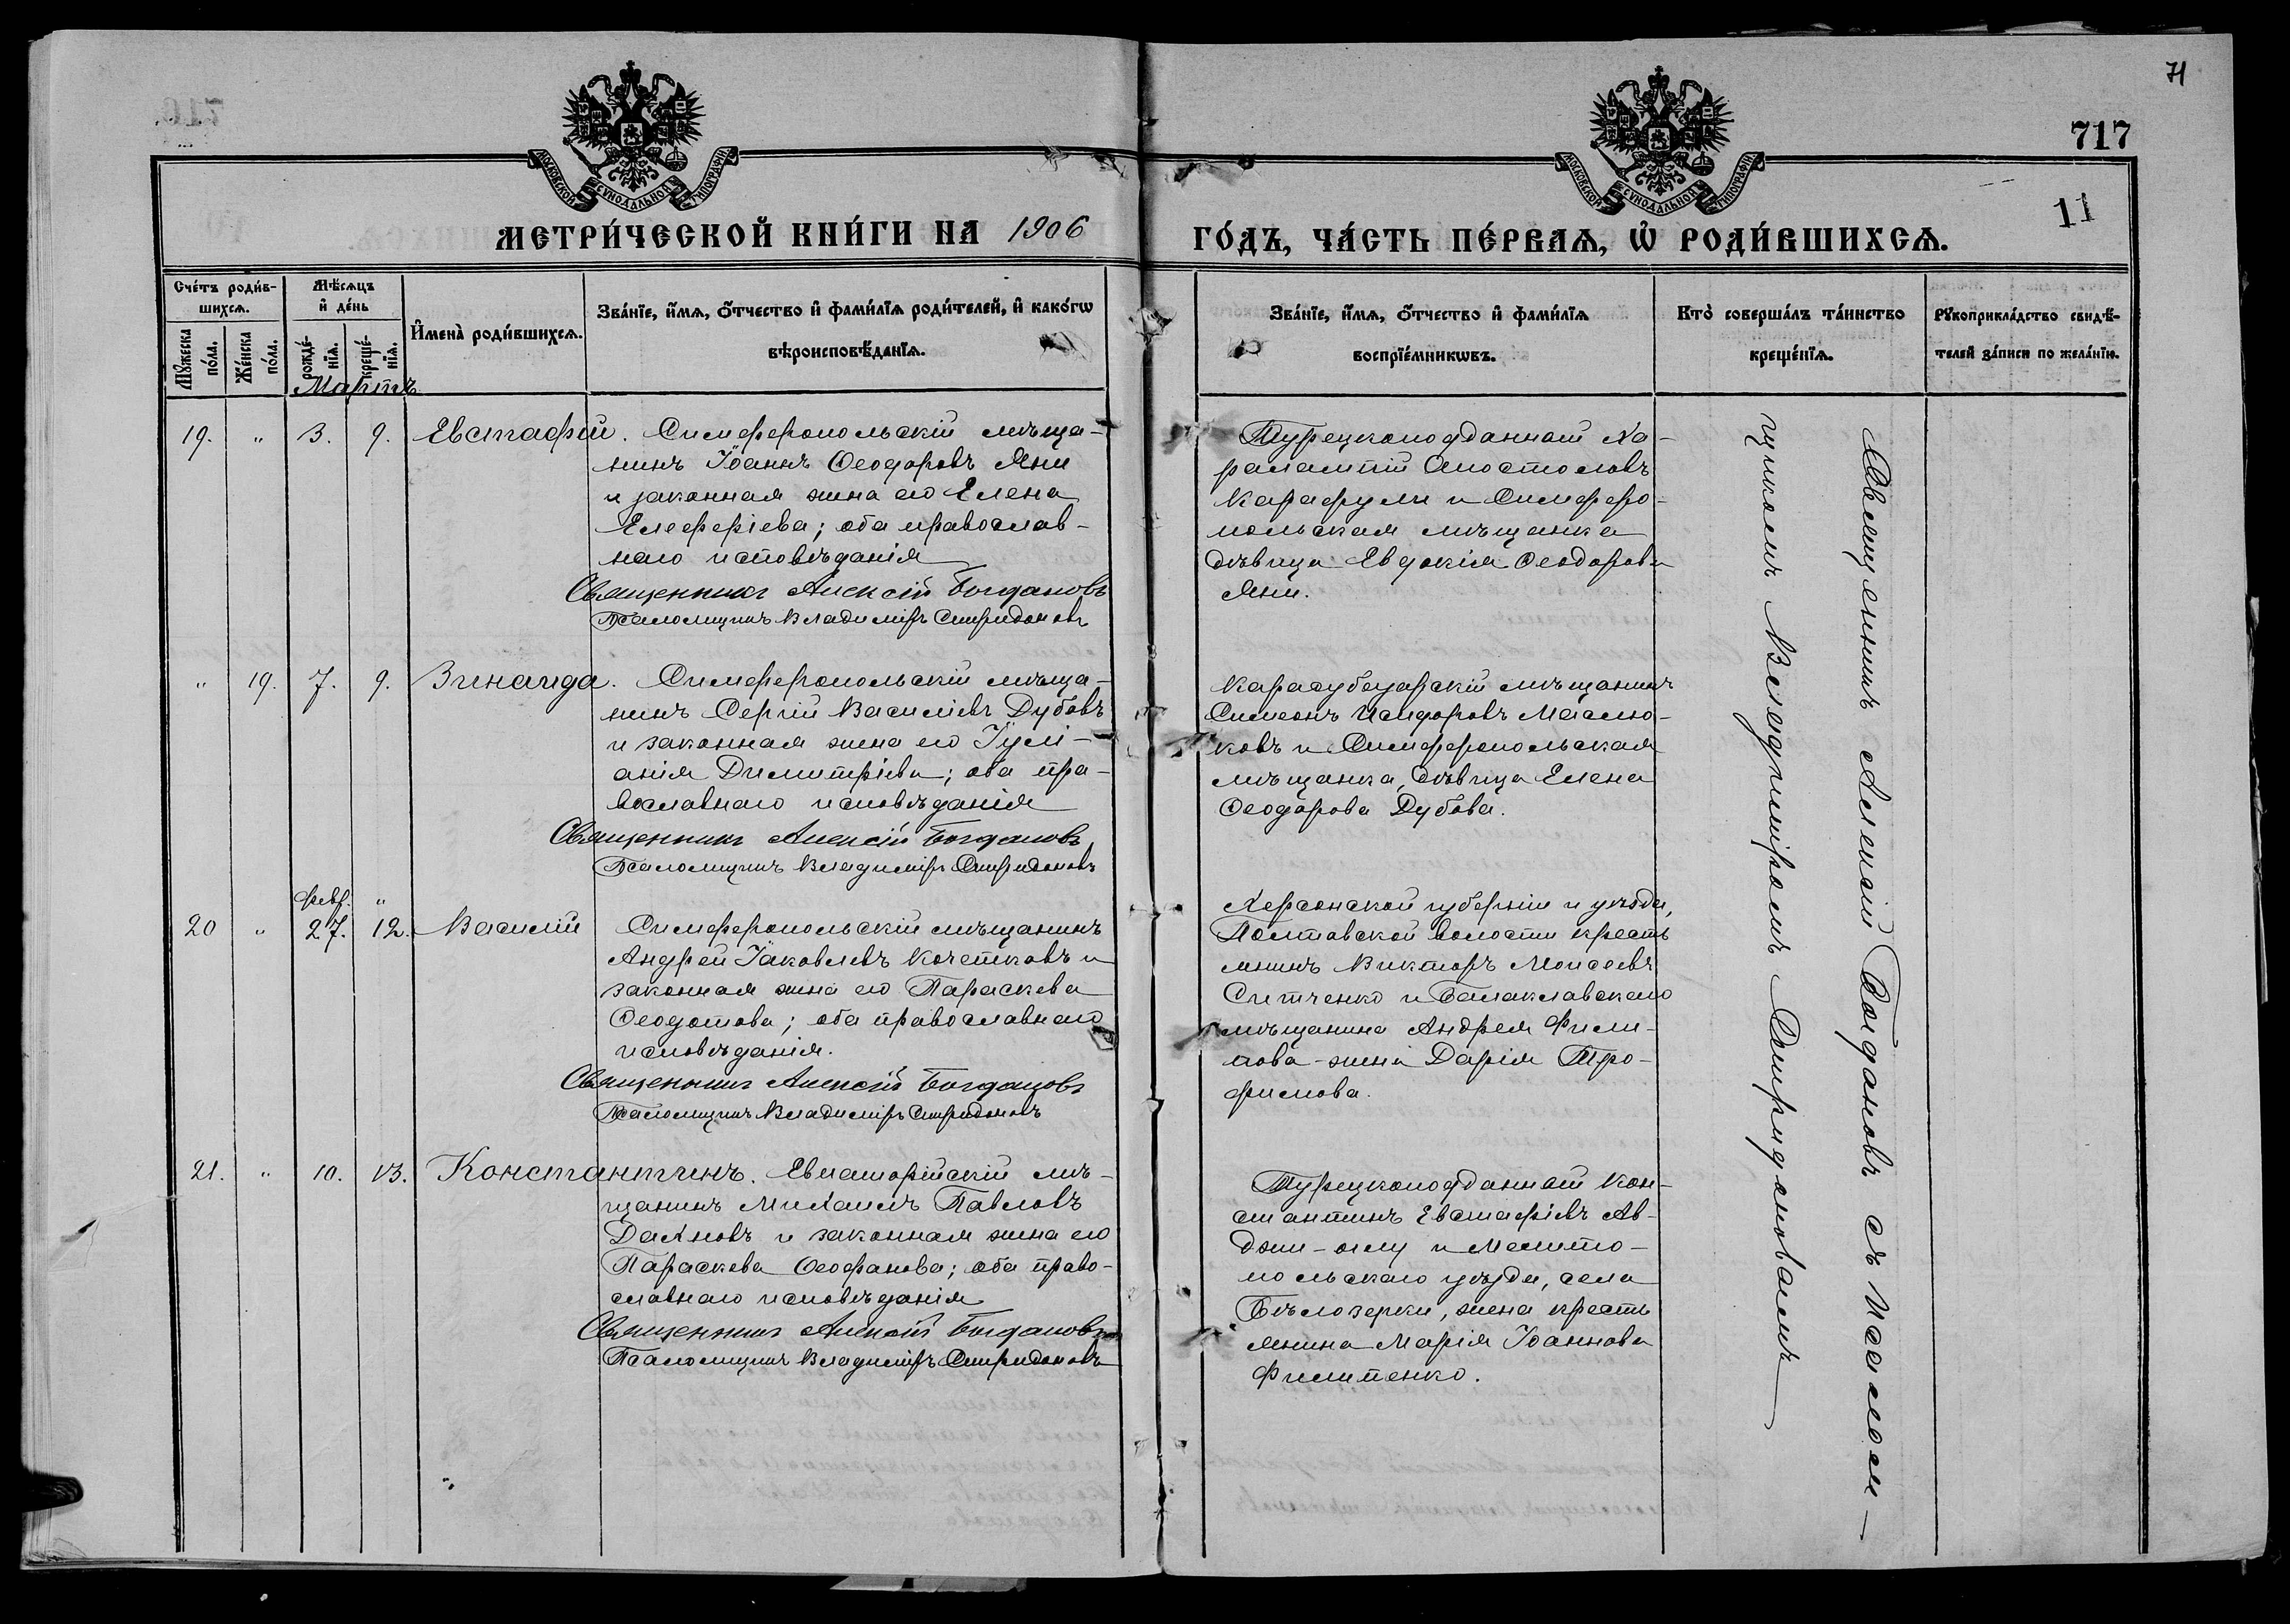 71
717
11
МОСКОВСКОЙ СѴНОДАЛЬНОЙ ТИПОГРАФІИ
МОСКОВСКОЙ СѴНОДАЛЬНОЙ ТИПОГРАФІИ
МЕТРИ́ЧЕСКОЙ КНИ́ГИ НА 1906
ГО́ДЪ, ЧА́СТЬ ПЕ́РВАѦ, Ѡ҆ РОДИ́ВШИХСѦ.
Сче́тъ роди́в-
шихсѧ.
Мꙋжеска по́ла.
Же́нска по́ла.
Мѣ́сѧцъ
и҆ де́нь
рожде́-
нїѧ.
креще́-
нїѧ.
И҆мена̀ роди́вшихсѧ.
Зва́нїе, и҆́мѧ, ѻ҆́тчество и҆ фами́лїѧ роди́телей, и҆ како́гѡ
вѣроисповѣ́данїѧ.
Зва́нїе, и҆́мѧ, ѻ҆́тчество и҆ фами́лїѧ
воспрїе́мникѡвъ.
Кто̀ соверша́лъ та́инство
креще́нїѧ.
Рꙋкоприкла́дство свидѣ́-
телей за́писи по жела́нїю.
Мартъ
19. " 3. 9. Евстафій. Симферопольскій мѣща-
нинъ Іоаннъ Ѳеодоровъ Яни
и законная жена его Елена
Елеѳеріева; оба православ-
наго исповѣданія
Священникъ Алексій Богдановъ
Псаломщикъ Владиміръ Спиридоновъ
Турецкоподданный Ха-
ралампій Апостоловъ
Карафули и Симферо-
польская мѣщанка
дѣвица Евдокія Ѳеодорова
Яни.
" 19. 7. 9. Зинаида. Симферопольскій мѣща-
нинъ Сергій Василіевъ Дубовъ
и законная жена его Іулі-
анія Димитріева; оба пра-
вославнаго исповѣданія
Священникъ Алексій Богдановъ
Псаломщикъ Владиміръ Спиридоновъ
Карасубазарскій мѣщанинъ
Симеонъ Исидоровъ Маслю-
ковъ и Симферопольская
мѣщанка, дѣвица Елена
Ѳеодорова Дубова.
Февр. "
20 " 27. 12. Василій Симферопольскій мѣщанинъ
Андрей Іаковлевъ Кочетковъ и
законная жена его Параскева
Ѳеодотова; оба православнаго
исповѣданія.
Священникъ Алексій Богдановъ
Псаломщикъ Владиміръ Спиридоновъ
Херсонской губерніи и уѣзда,
Полтавской волости кресть
янинъ Викторъ Моисеевъ
Ситченко и Балаклавскаго
мѣщанина Андрея Фили-
пова жена Дарія Тро-
фимова.
21. " 10. 13. Константинъ. Евпаторійскій мѣ-
щанинъ Михаилъ Павловъ
Дахновъ и законная жена его
Параскева Ѳеофанова; оба право-
славнаго исповѣданія
Священникъ Алексій Богдановъ
Псаломщикъ Владиміръ Спиридоновъ
Турецкоподданный Кон-
стантинъ Евстафіевъ Ав-
джи-оглу и Мелито-
польскаго уѣзда, села
Бѣлозерки, жена кресть
янина Марія Іоаннова
Филипенко.
Священникъ Алексій Богдановъ съ псалом-
щикомъ Владиміромъ Спиридоновымъ